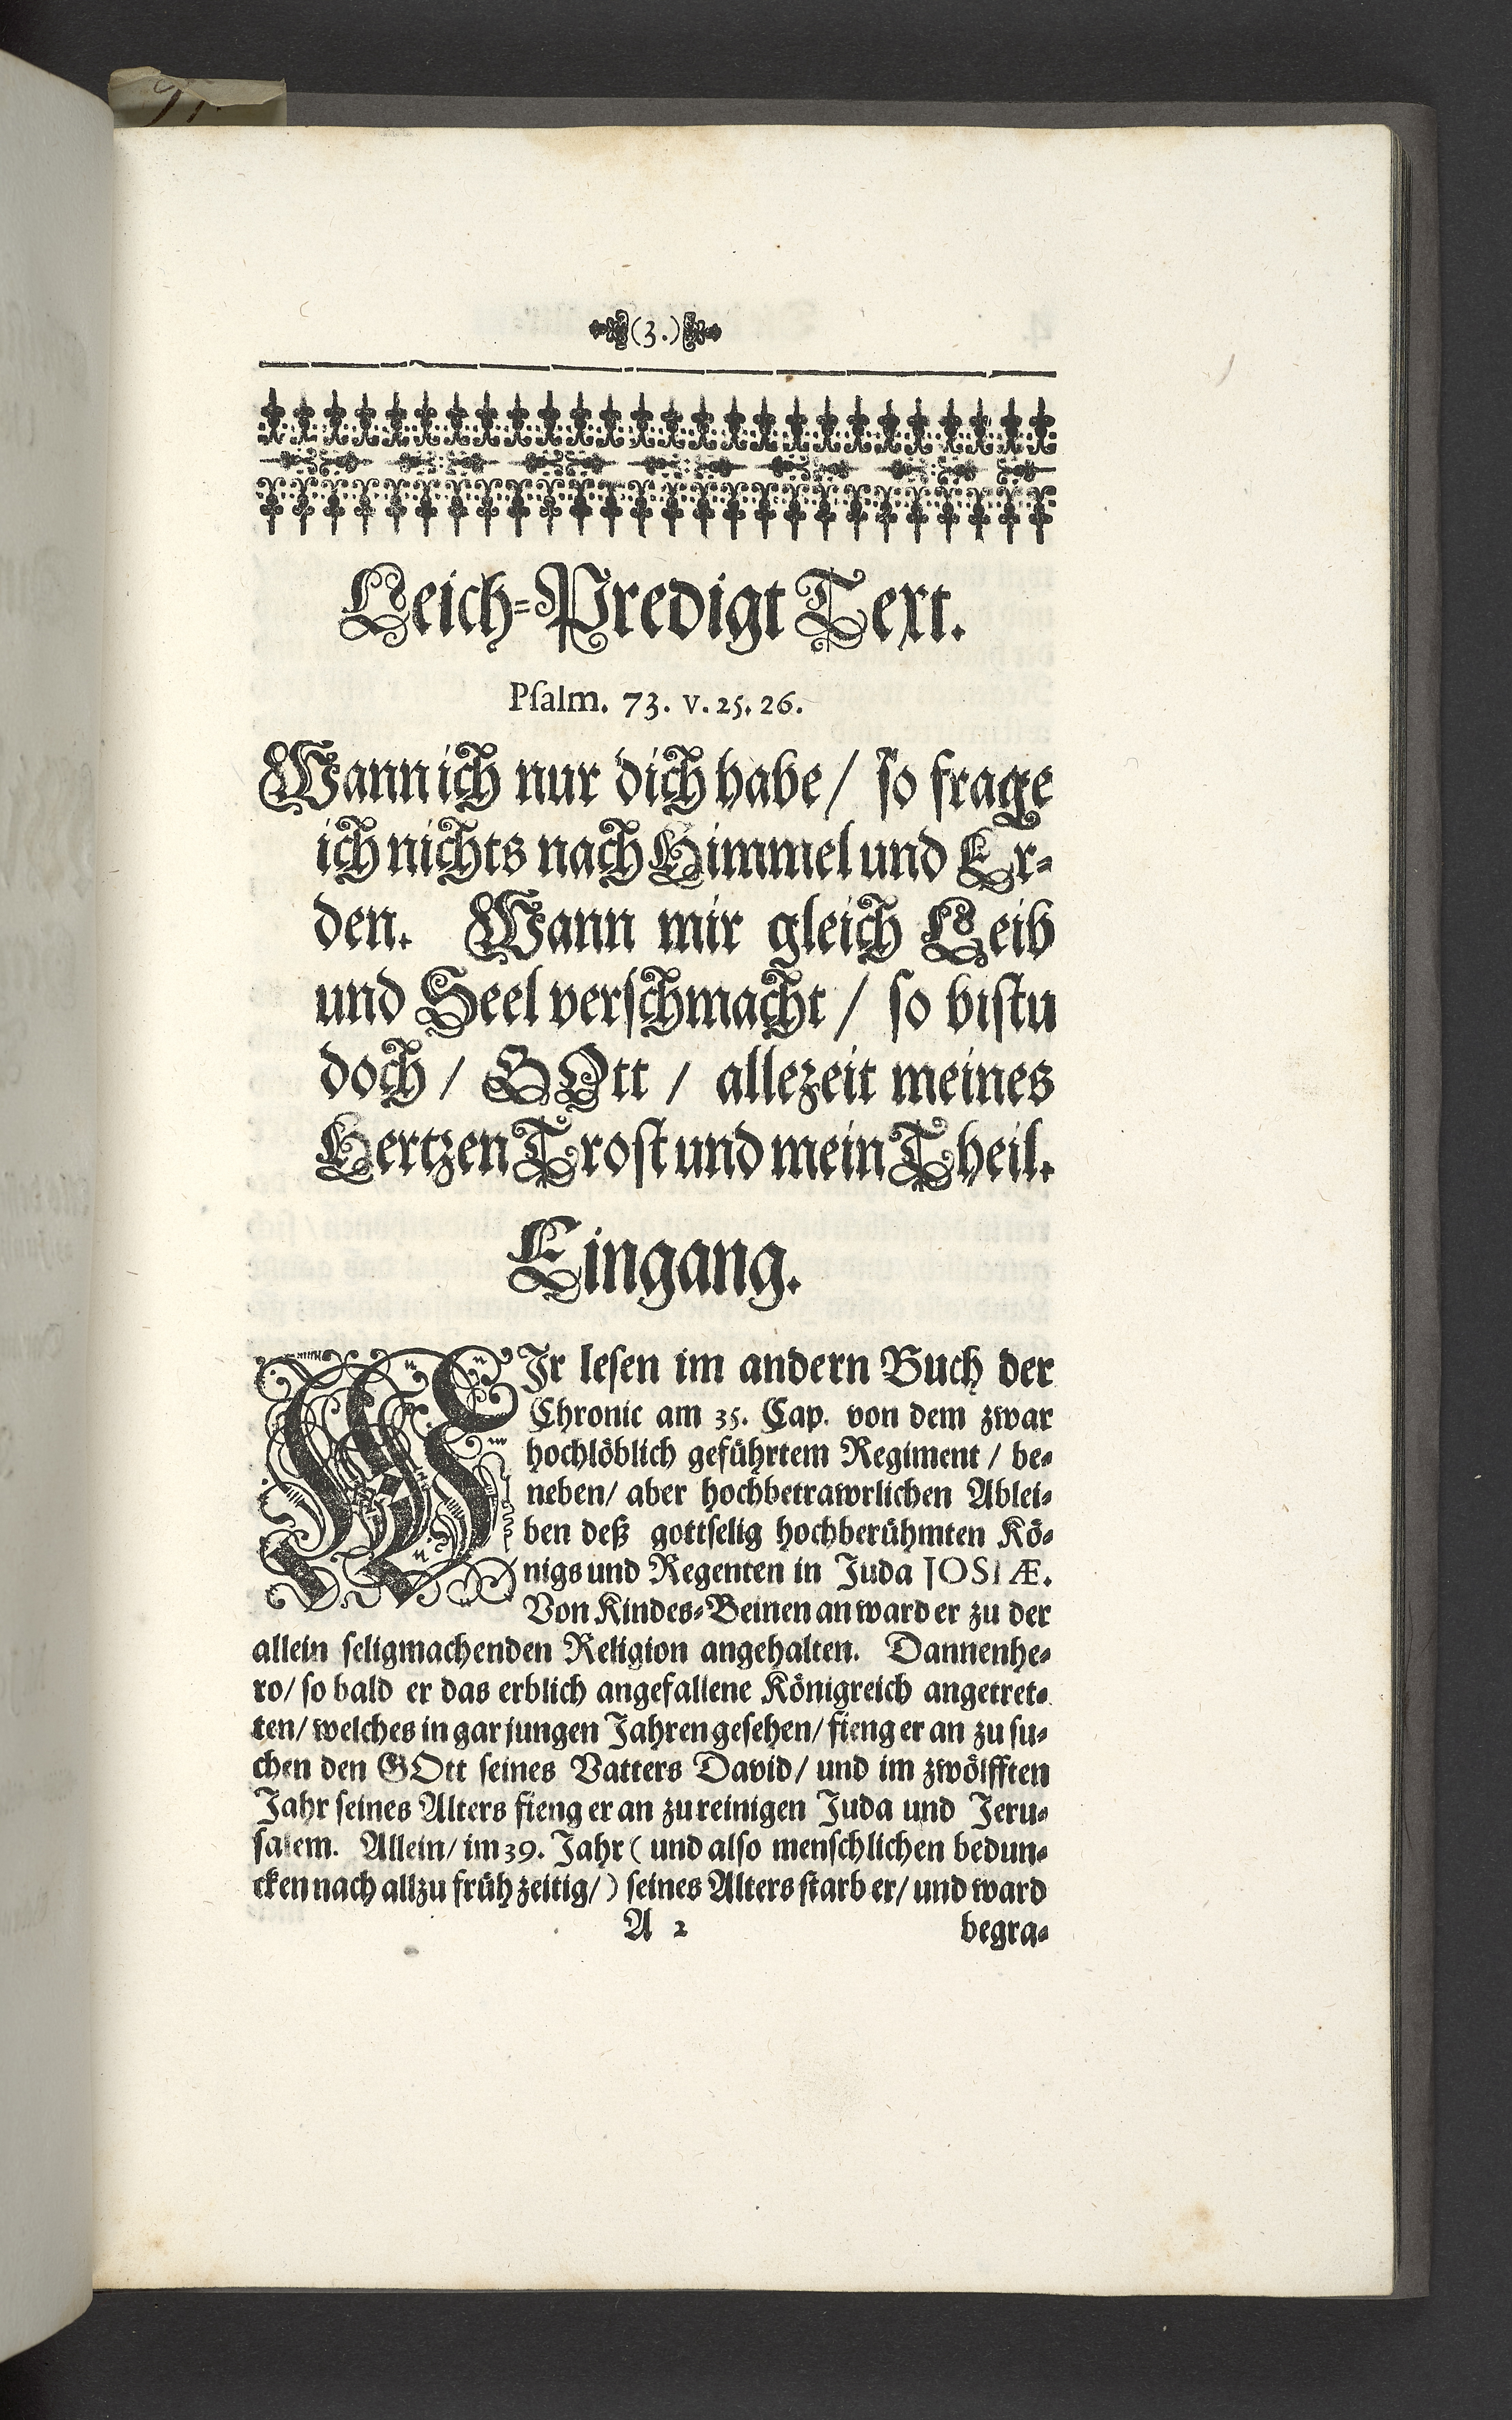 (3.)
Leich-Predigt Text.
Psalm. 73. v. 25. 26.
Wann ich nur dich habe / so frage
ich nichts nach Himmel und Er-
den. Wann mir gleich Leib
und Seel verschmacht / so bistu
doch / GOtt / allezeit meines
Hertzen Trost und mein Theil.
Eingang.
WIr lesen im andern Buch der
Chronic am 35. Cap. von dem zwar
hochlöblich geführtem Regiment / be-
neben / aber hochbetrawrlichen Ablei-
ben deß gottselig hochberühmten Kö-
nigs und Regenten in Juda JOSIÆ.
Von Kindes-Beinen an ward er zu der
allein seligmachenden Religion angehalten. Dannenhe-
ro / so bald er das erblich angefallene Königreich angetret-
ten / welches in gar jungen Jahren gesehen / fieng er an zu su-
chen den GOtt seines Vatters David / und im zwölfften
Jahr seines Alters fieng er an zu reinigen Juda und Jeru-
salem. Allein / im 39. Jahr ( und also menschlichen bedun-
cken nach allzu früh zeitig / ) seines Alters starb er / und ward
A 2 begra-